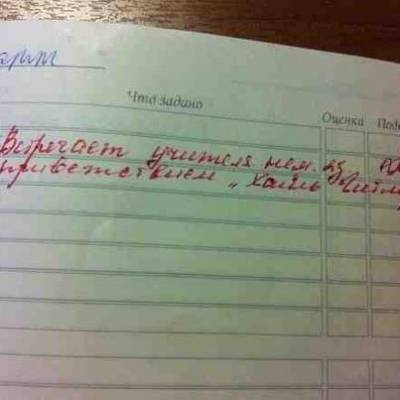 арт
Что задано Оценка Под
Встречает учителя нем. яз
приветствием „Хайль Гитл